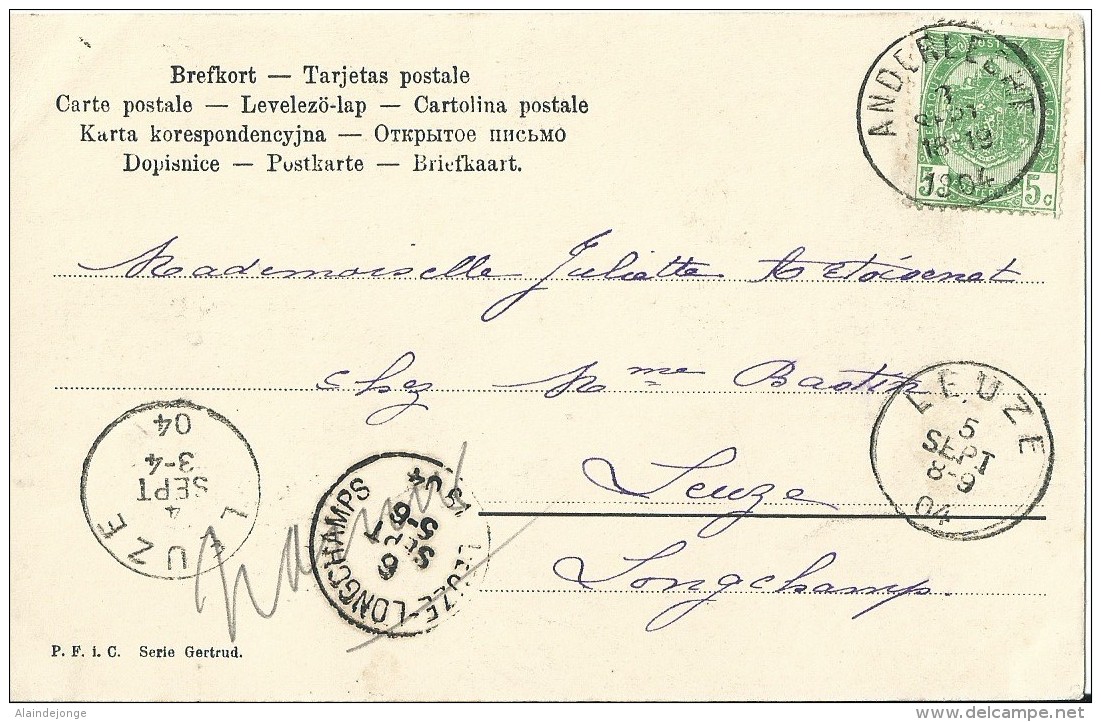 Brefkort — Tarjetas postale
Carte postale — Levelezö-lap — Cartolina postale
Karta korespondencyjna — Открытое письмо
Dopisnice — Postkarte — Briefkaart.
ANDERLECHT
3
SEPT
18-19
1904
5 5 c
Mademoiselle Juliette
chez Mme Bastin
Leuze
Longchamp.
LEUZE
5
SEPT
8-9
04
LEUZE
4
SEPT
3-4
04
LEUZE-LONGCHAMPS
6
SEPT
5-6
Namur
P. F. i. C. Serie Gertrud.
Alaindejonge
delcampe.net